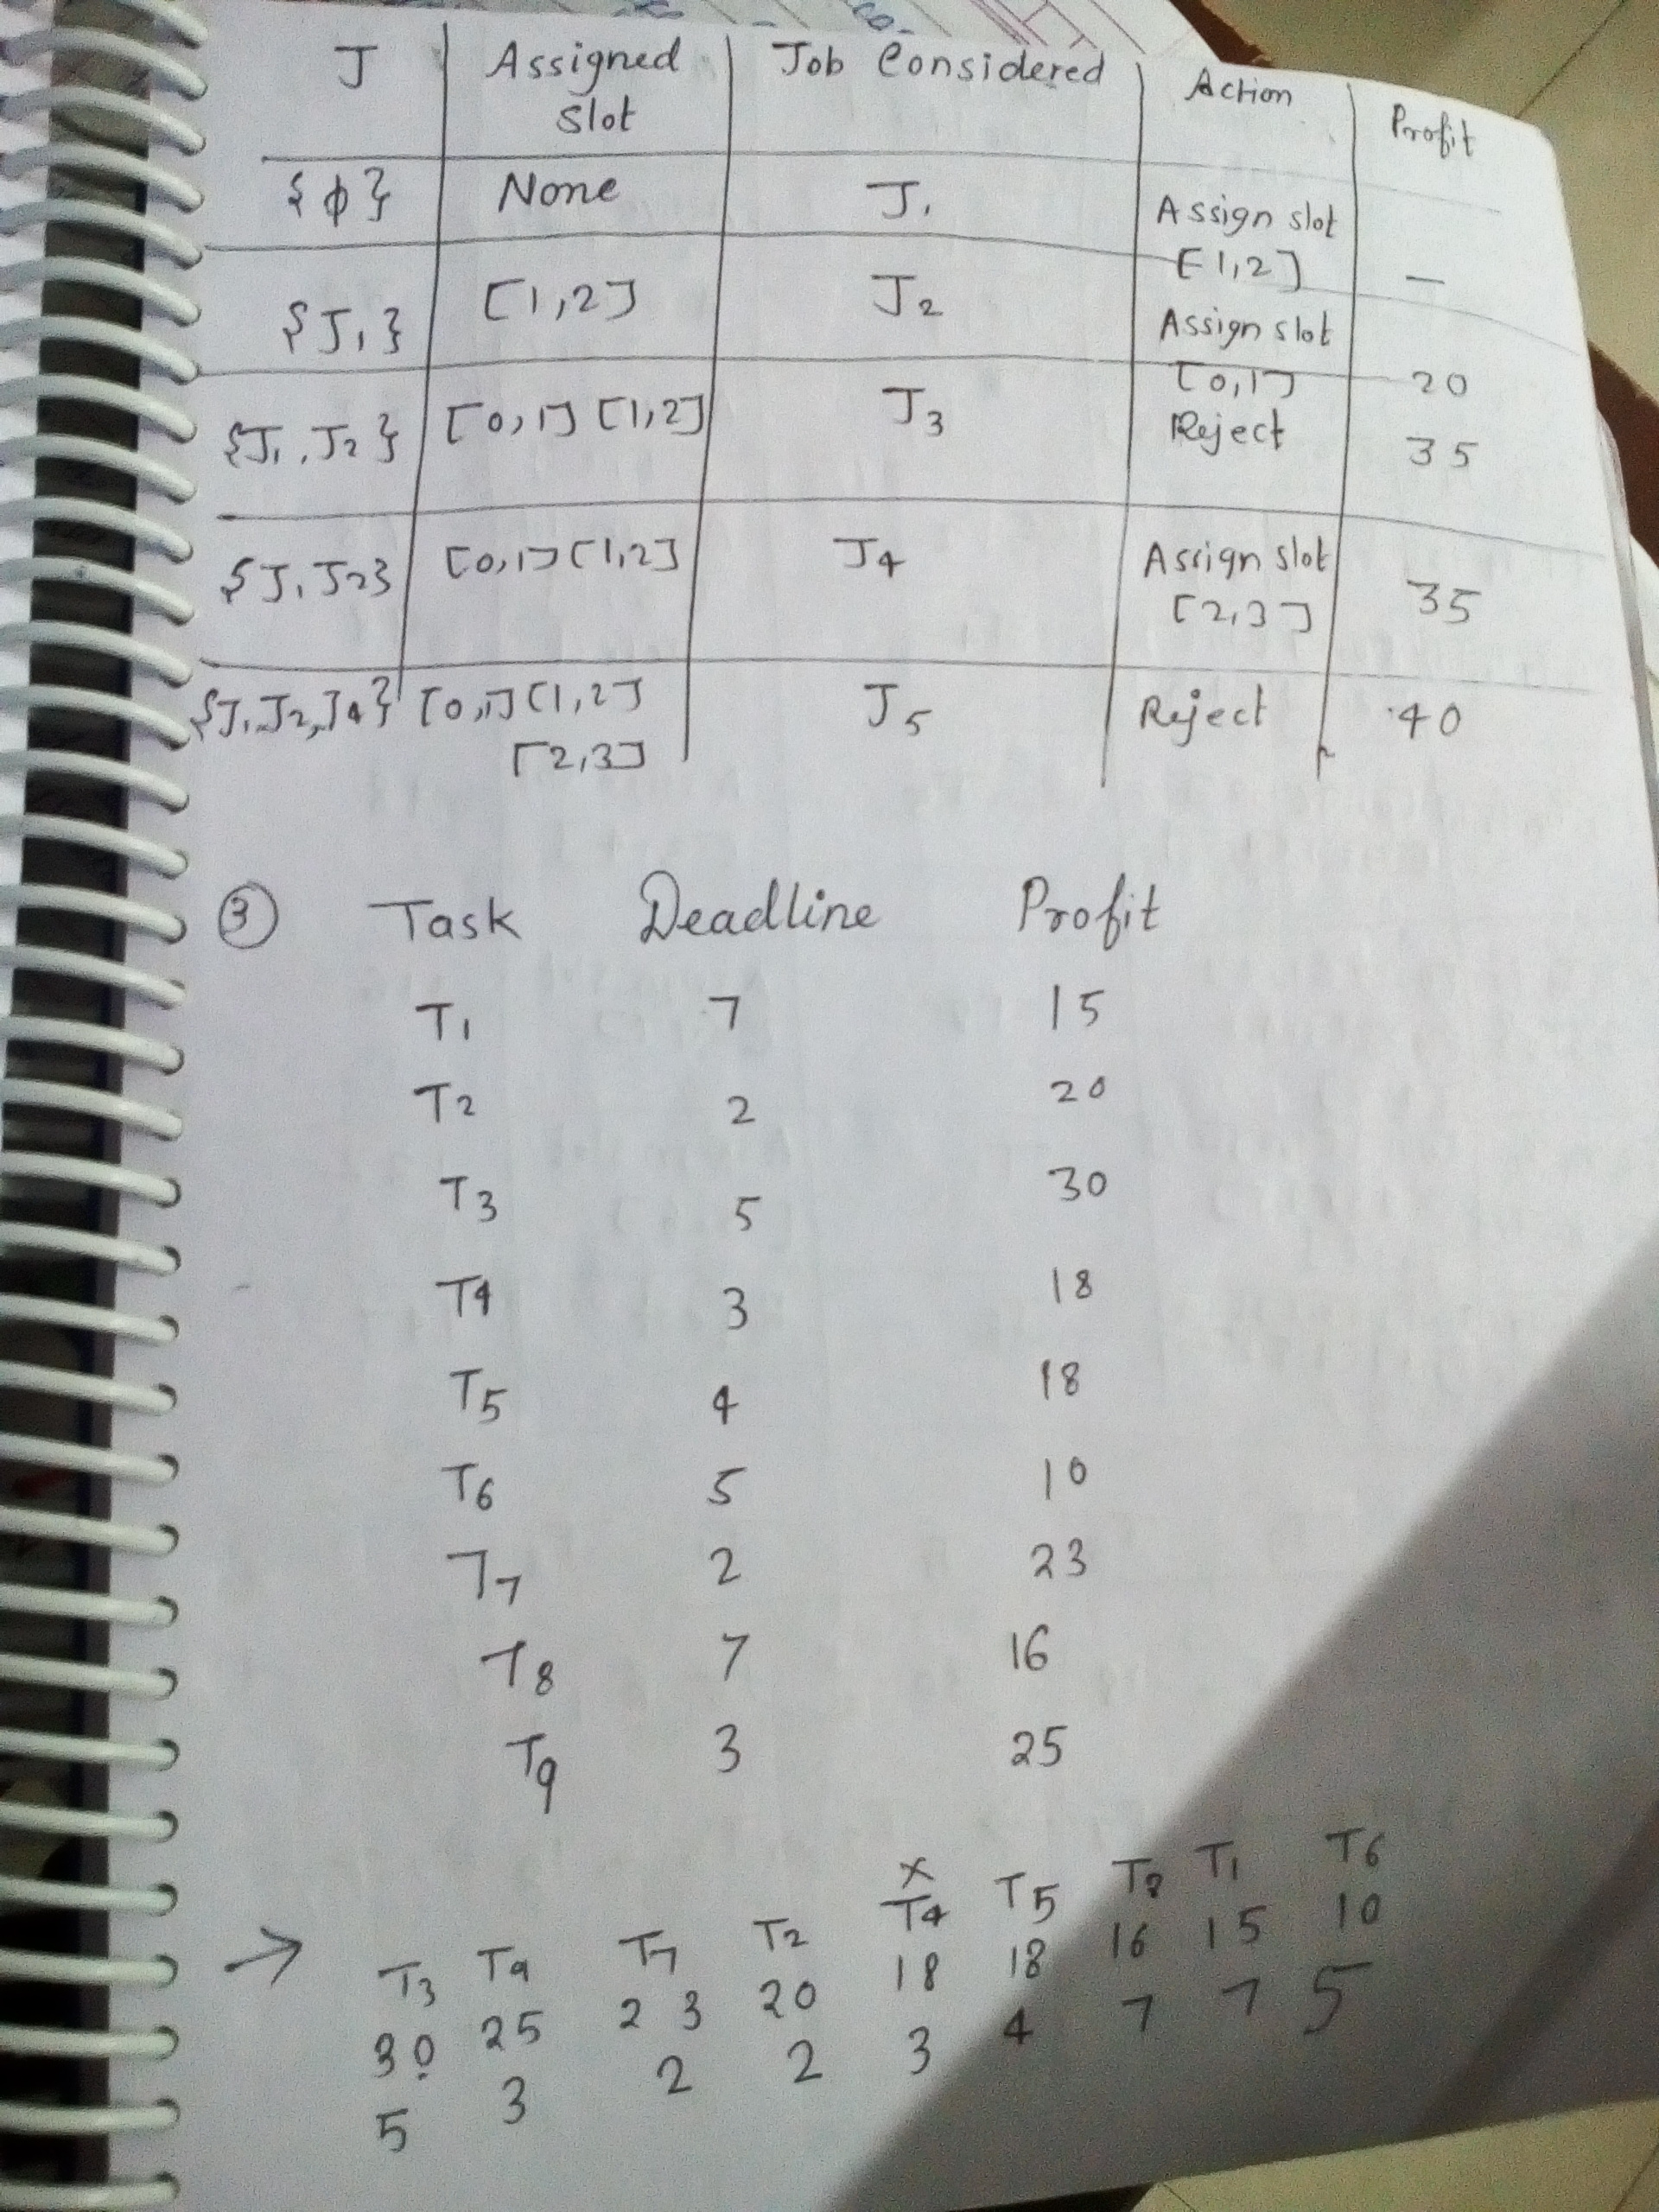 J | Assigned slot | Job Considered | Action | Profit
{ϕ} | None | J1 | Assign slot [1,2] | —
{J1} | [1,2] | J2 | Assign slot [0,1] | 20
{J1, J2} | [0,1] [1,2] | J3 | Reject | 35
{J1 J2} | [0,1] [1,2] | J4 | Assign slot [2,3] | 35
{J1, J2, J4} | [0,1] [1,2] [2,3] | J5 | Reject | 40
③ Task Deadline Profit
T1 7 15
T2 2 20
T3 5 30
T4 3 18
T5 4 18
T6 5 10
T7 2 23
T8 7 16
T9 3 25
x
→ T3 T9 T7 T2 T4 T5 T8 T1 T6
30 25 23 20 18 18 16 15 10
5 3 2 2 3 4 7 7 5